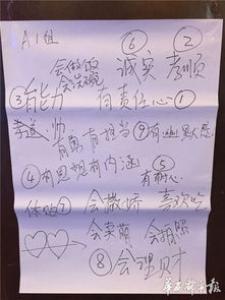 A1组
⑥ ②
会做饭 诚实 孝顺
会洗碗
③有能力 有责任心①
孝道、帅
有房 有担当 ⑨有幽默感
④有思想有内涵
⑤
体贴⑦ 有耐心
会撒娇 喜欢吃
会卖萌 会拍照
⑧会理财
华西都市报